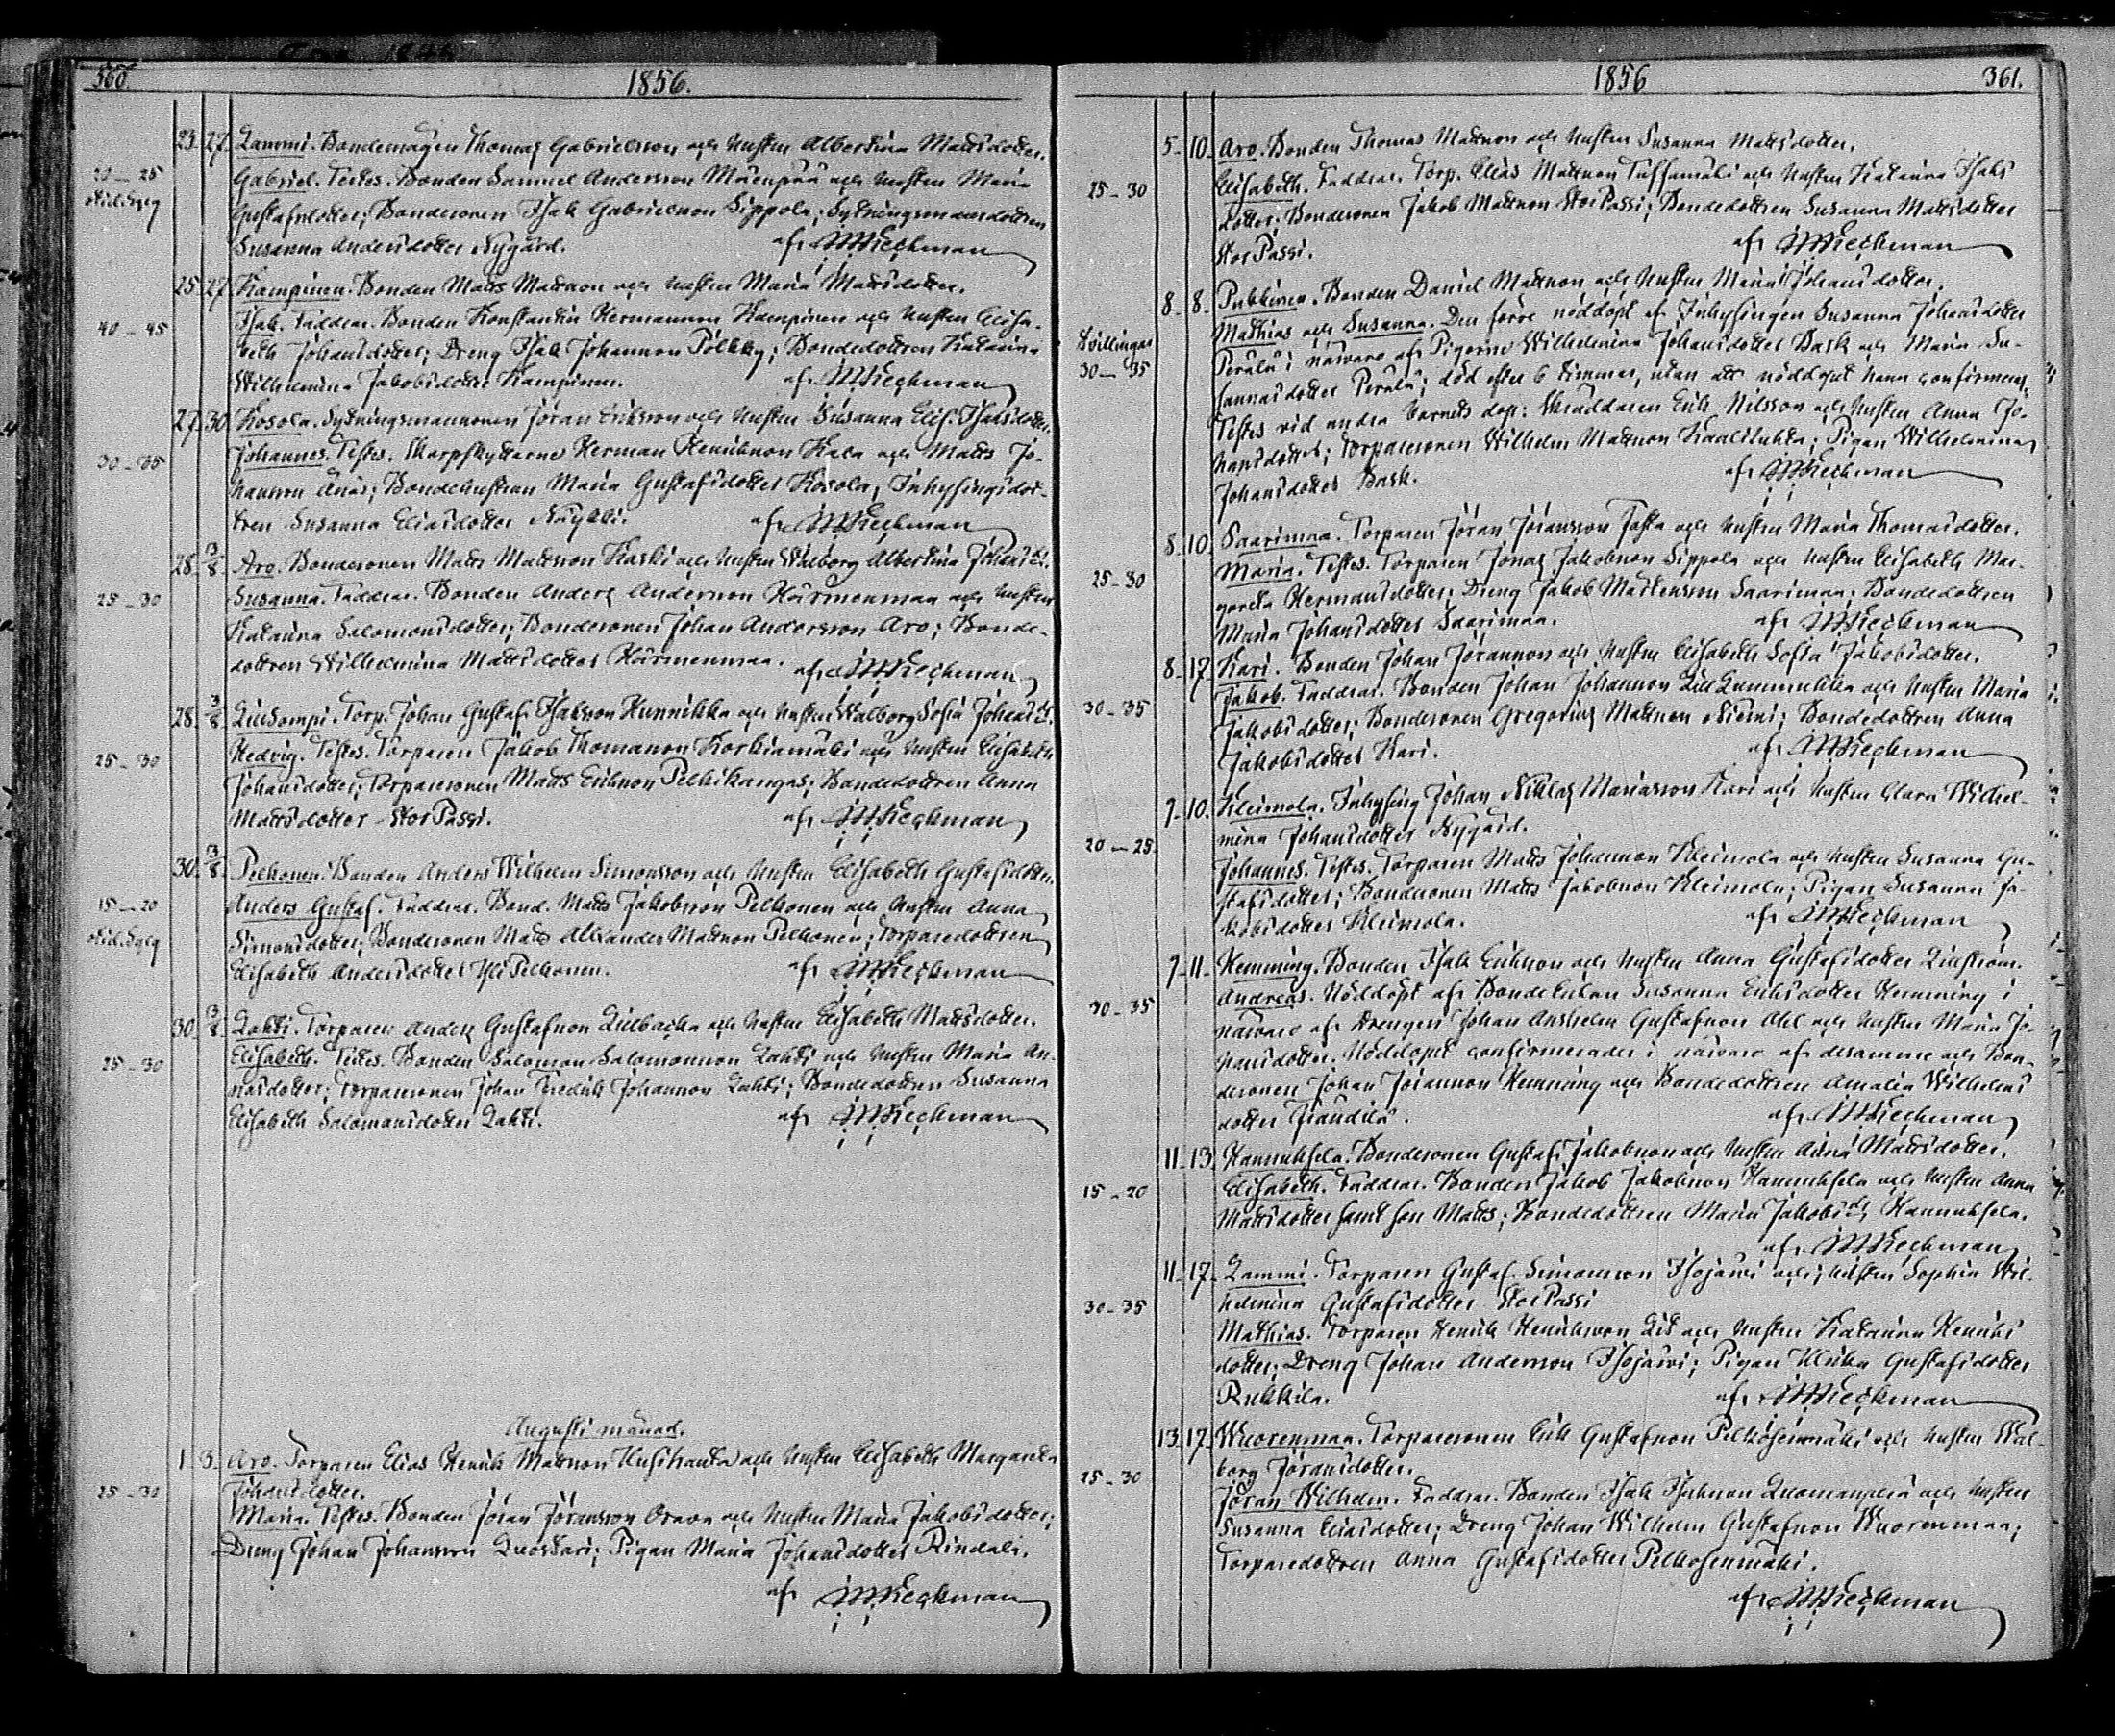 360.
1856.
23. 27. Lammi. Bondemågen Thomas Gabrielsson och hustru Albertina Mattsdotter.
20-25 Gabriel. Testes. Bonden Samuel Andersson Mäenpää och hustru Maria
Gustafsdotter; Bondesonen Isak Gabrielsson Sippola; Sytningsmansdottren
Susanna Andersdotter Nygård. af
25. 27. Kampinen. Bonden Matts Mattsson och hustru Maria Mattsdotter.
40-45 Isak. Faddrar. Bonden Konstantin Hermansson Kampinen och hustru Elisa-
beth Johansdotter; Dreng Isak Johansson Pölkky; Bondedottren Katarina
Wilhelmina Jakobsdotter Kampinen. af
27. 30. Kosola. Sytningsmanssonen Jöran Eriksson och hustru Susanna Elis. Isaksdotter.
30-35 Johannes. Testes. Skarpskyttarne Herman Henriksson Kala och Matts Jo-
hansson; Bondehustrun Maria Gustafsdotter Kosola, Inhysingsdot-
tren Susanna Eliasdotter Näykki. af
28. 3/8. Aro. Bondesonen Matts Mattsson Kaski och hustru Walborg Albertina Johansdr.
25-30 Susanna. Faddrar. Bonden Anders Andersson Härmenmaa och hustru
Katarina Salomonsdotter; Bondesonen Johan Andersson Aro; Bonde-
dottren Wilhelmina Mattsdotter Härmenmaa. af
28. 3/8. Torp. Johan Gustaf Isaksson Hunnikka och hustru Walborg Sofia Johansdr.
25-30 Hedvig. Testes. Torparen Jakob Thomasson Korkiamäki och hustru Elisabeth
Johansdotter; Torparesonen Matts Eriksson Pelkikangas; Bondedottren Anna
Mattsdotter StorPassi. af
30. 3/8. Pelkonen. Bonden Anders Wilhelm Simonsson och hustru Elisabeth Gustafsdotter.
15-20 Anders Gustaf. Faddrar. Bond. Matts Jakobsson Pelkonen och hustru Anna
Simonsdotter; Bondesonen Matts Alexander Mattsson Pelkonen; Torparedottren
Elisabeth Andersdotter YliPelkonen. af
30. 3/8. Lahti. Torparen Anders Gustafsson Lillbacka och hustru Elisabeth Mattsdotter.
25-30 Elisabeth. Testes. Bonden Salomon Salomonsson Lahti och hustru Maria An-
dersdotter; Torparesonen Johan Fredrik Johansson Lahti; Bondedottren Susanna
Elisabeth Salomonsdotter Lahti. af
Augusti månad.
1. 3. Aro. Torparen Elias Henrik Mattsson Uusihanka och hustru Elisabeth Margareta
25-30 Johansdotter.
Maria. Testes. Bonden Jöran Jöransson Orava och hustru Maria Jakobsdotter;
Dreng Johan Johansson Luostari; Pigan Maria Johansdotter Rindala.
af
1856
361.
5. 10. Aro. Bonden Thomas Mattsson och hustru Susanna Mattsdotter.
25-30 Elisabeth. Faddrar. Torp. Elias Mattsson och hustru Katarina Isaks
dotter; Bondesonen Jakob Mattsson StorPassi; Bondedottren Susanna Mattsdotter
StorPassi. af
8. 8. Pukkinen. Bonden Daniel Mattsson och hustru Maria Johansdotter.
Tvillingar Mathias och Susanna. Den förre nöddöpt af Inhysingen Susanna Johansdotter
30-35 Perälä i närvaro af Pigorne Wilhelmina Johansdotter Bask och Maria Su-
sannasdotter Perälä; död efter 6 timmar, utan att nöddopet hann confirmeras.
Testes vid andra barnets dop: Skräddaren Erik Nilsson och hustru Anna Jo-
hansdotter; Torparesonen Wilhelm Mattsson; Pigan Wilhelmina
Johansdotter Bask. af
8. 10. Saarimaa. Torparen Jöran Jöransson och hustru Maria Thomasdotter.
25-30 Maria. Testes. Torparen Jonas Jakobsson Sippola och hustru Elisabeth Mar-
gareta Hermansdotter; Dreng Jakob Mårtensson Saarimaa; Bondedottren
Maria Johansdotter Saarimaa. af
8. 17. Kari. Bonden Johan Jöransson och hustru Elisabeth Sofia Jakobsdotter.
30-35 Jakob. Faddrar. Bonden Johan Johansson och hustru Maria
Jakobsdotter; Bondesonen Gregorius Mattsson Niemi; Bondedottren Anna
Jakobsdotter Kari. af
9. 10. Kleimola. Inhysing Johan Niklas Mariasson Kari och hustru Clara Wilhel-
20-25 mina Johansdotter Nygård.
Johannes. Testes. Torparen Matts Johansson Kleimola och hustru Susanna Gu-
stafsdotter; Bondesonen Matts Jakobsson Kleimola; Pigan Susanna Ja-
kobsdotter Kleimola. af
9. 11. Hemming. Bonden Isak Eriksson och hustru Anna Gustafsdotter
30-35 Andreas. Nöddöpt af Bondeenkan Susanna Eriksdotter Hemming i
närvaro af Drengen Johan Anshelm Gustafsson och hustru Maria Jo-
hansdotter. Nöddopet confirmerades i närvaro af desamme och Bon-
desonen Johan Johansson Hemming och Bondedottren Amalia Wilhelms
dotter. af
11. 13. Hannuksela. Bondesonen Gustaf Jakobsson och hustru Anna Mattsdotter.
15-20 Elisabeth. Faddrar. Bonden Jakob Jakobsson Hannuksela och hustru Anna
Mattsdotter samt son Matts; Bondedottren Maria Jakobsdr Hannuksela.
af
11. 17. Lammi. Torparen Gustaf Simonsson Isojärvi och hustru Sophia Wil-
30-35 helmina Gustafsdotter StorPassi
Mathias. Torparen Henrik Henriksson och hustru Katarina Henriks
dotter; Dreng Johan Andersson Isojärvi; Pigan Ulrika Gustafsdotter
Rukkila. af
13. 17. Wuorenmaa. Torparesonen Erik Gustafsson Pelkosenmäki och hustru Wal-
25-30 borg Jöransdotter.
Jöran Wilhelm. Faddrar. Bonden Isak Isaksson Luomanperä och hustru
Susanna Eliasdotter; Dreng Johan Wilhelm Gustafsson Wuorenmaa;
Torparedottren Anna Gustafsdotter Pelkosenmäki.
af